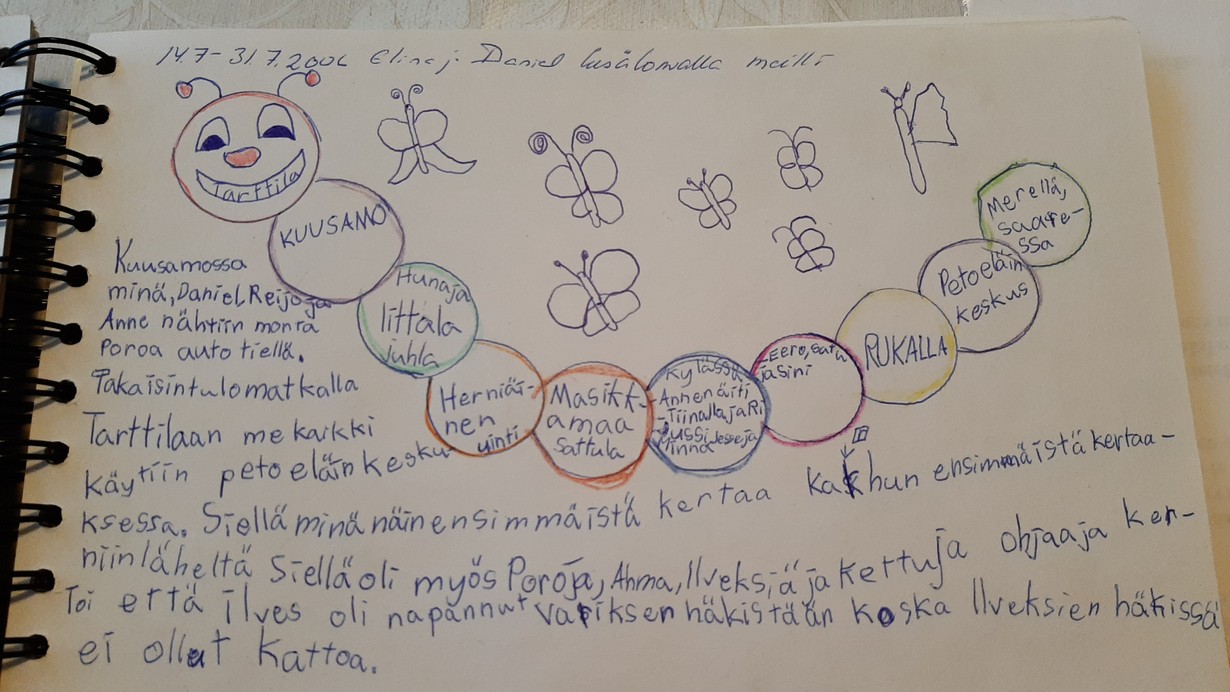 14.7-31.7.2006 Elina j. Daniel kesälomalla meillä
Tarttila
KUUSAMO
Hunaja
Iittala
juhla
Herniäi-
nen
uinti
Masikk-
amaa
Sattula
Kylässä
-Annen äiti
-Tiinalla ja Ri
Jussi, Jesse ja
Minna
-Eero, Satu
ja Sini
RUKALLA
Petoeläin
keskus
Merellä,
saare-
ssa
Kuusamossa
minä, Daniel, Reijo ja
Anne nähtiin monta
Poroa auto tiellä.
Takaisintulomatkalla
Tarttilaan me kaikki
käytiin petoeläinkesku-
ksessa. Siellä minä näin ensimmäistä kertaa karhun ensimmäistä kertaa-
niin läheltä Siellä oli myös Poroja, Ahma, Ilveksiä ja kettuja ohjaaja ker-
Toi että ilves oli napannut variksen häkistään koska Ilveksien häkissä
ei ollut kattoa.